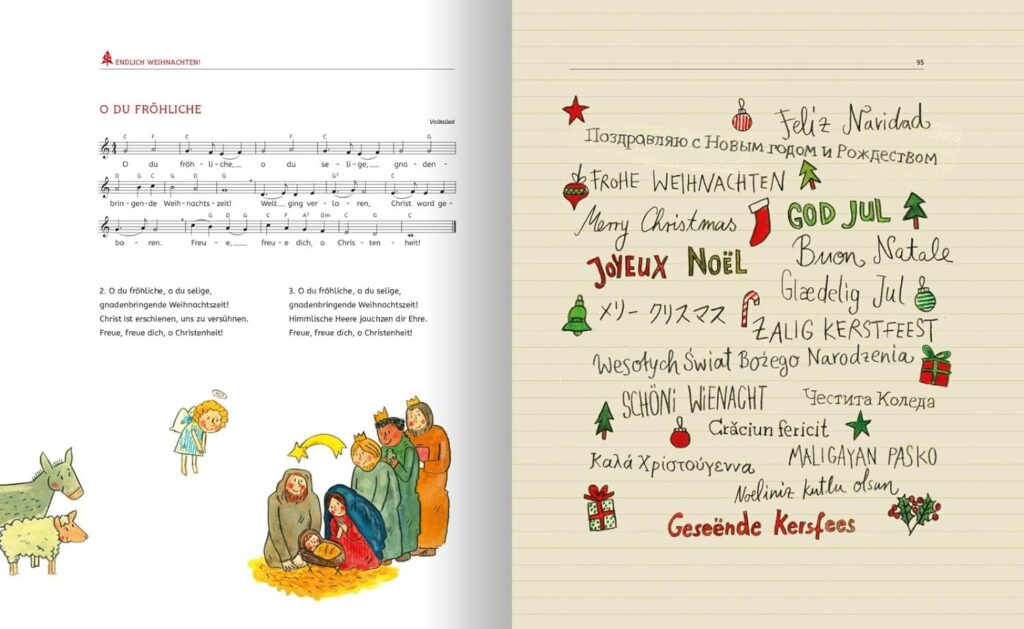 ENDLICH WEIHNACHTEN!
O DU FRÖHLICHE
Volkslied
C F C F C G
O du fröh-li-che, o du se-li-ge, gna-den-
D G C G D G G7 C
brin-gen-de Weih-nachts-zeit! Welt ging ver-lo-ren, Christ ward ge-
G D G C F A7 Dm C G C
bo-ren. Freu-e, freu-e dich, o Chris-ten-heit!
2. O du fröhliche, o du selige,
gnadenbringende Weihnachtszeit!
Christ ist erschienen, uns zu versühnen.
Freue, freue dich, o Christenheit!
3. O du fröhliche, o du selige,
gnadenbringende Weihnachtszeit!
Himmlische Heere jauchzen dir Ehre.
Freue, freue dich, o Christenheit!
95
Feliz Navidad
Поздравляю с Новым годом и Рождеством
FROHE WEIHNACHTEN
Merry Christmas
GOD JUL
JOYEUX NOËL
Buon Natale
Glædelig Jul
メリー クリスマス
ZALIG KERSTFEEST
Wesołych Świat Bożego Narodzenia
SCHÖNI WIENACHT
Честита Коледа
Crăciun fericit
Καλά Χριστούγεννα
MALIGAYAN PASKO
Noeliniz kutlu olsun
Geseënde Kersfees